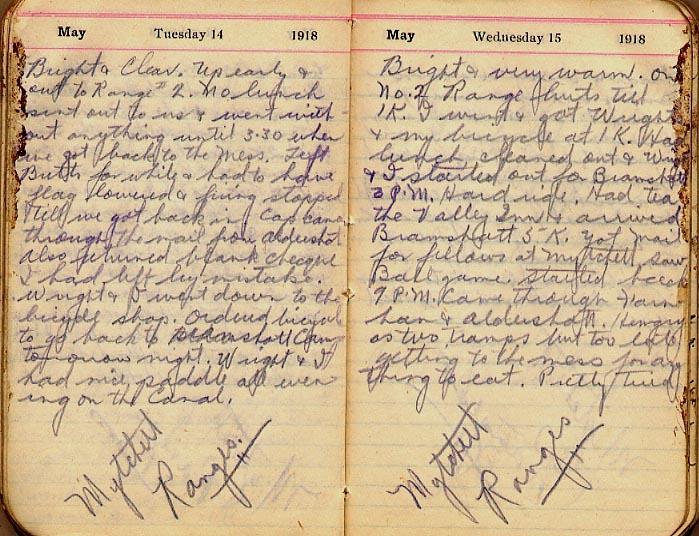 May Tuesday 14 1918
Bright & Clear. Up early &
out to Range # 2. No lunch
sent out to us & went with-
out anything until 3.30 when
we got back to the Mess. Left
Butts for while & had to have
flag lowered & firing stopped
till we got back in. Cap
through the mail from Aldershot
also returned blank cheque
I had left by mistake.
Wright & I went down to the
bicycle shop. Ordered bicycle
to go back to Bramshott Camp
tomorrow night. Wright & I
had nice paddle all even
ing on the Canal.
Mytchett
Ranges.
May Wednesday 15 1918
Bright & very warm. On
No. 2 Range butts till
1 K. I went & got Wright
& my bicycle at 1 K. Had
lunch, cleaned out & Wright
& I started out for Bramshott
3 P.M. Hard ride. Had tea
the Valley Inn & arrived
Bramshott 5 K. Got mail
for fellows at Mytchett, saw
Ball game. started back
9 P.M. Came through Farn
ham & Aldershot. Hungry
as two tramps but too late
getting to the mess for any
thing to eat. Pretty tired
Mytchett
Ranges